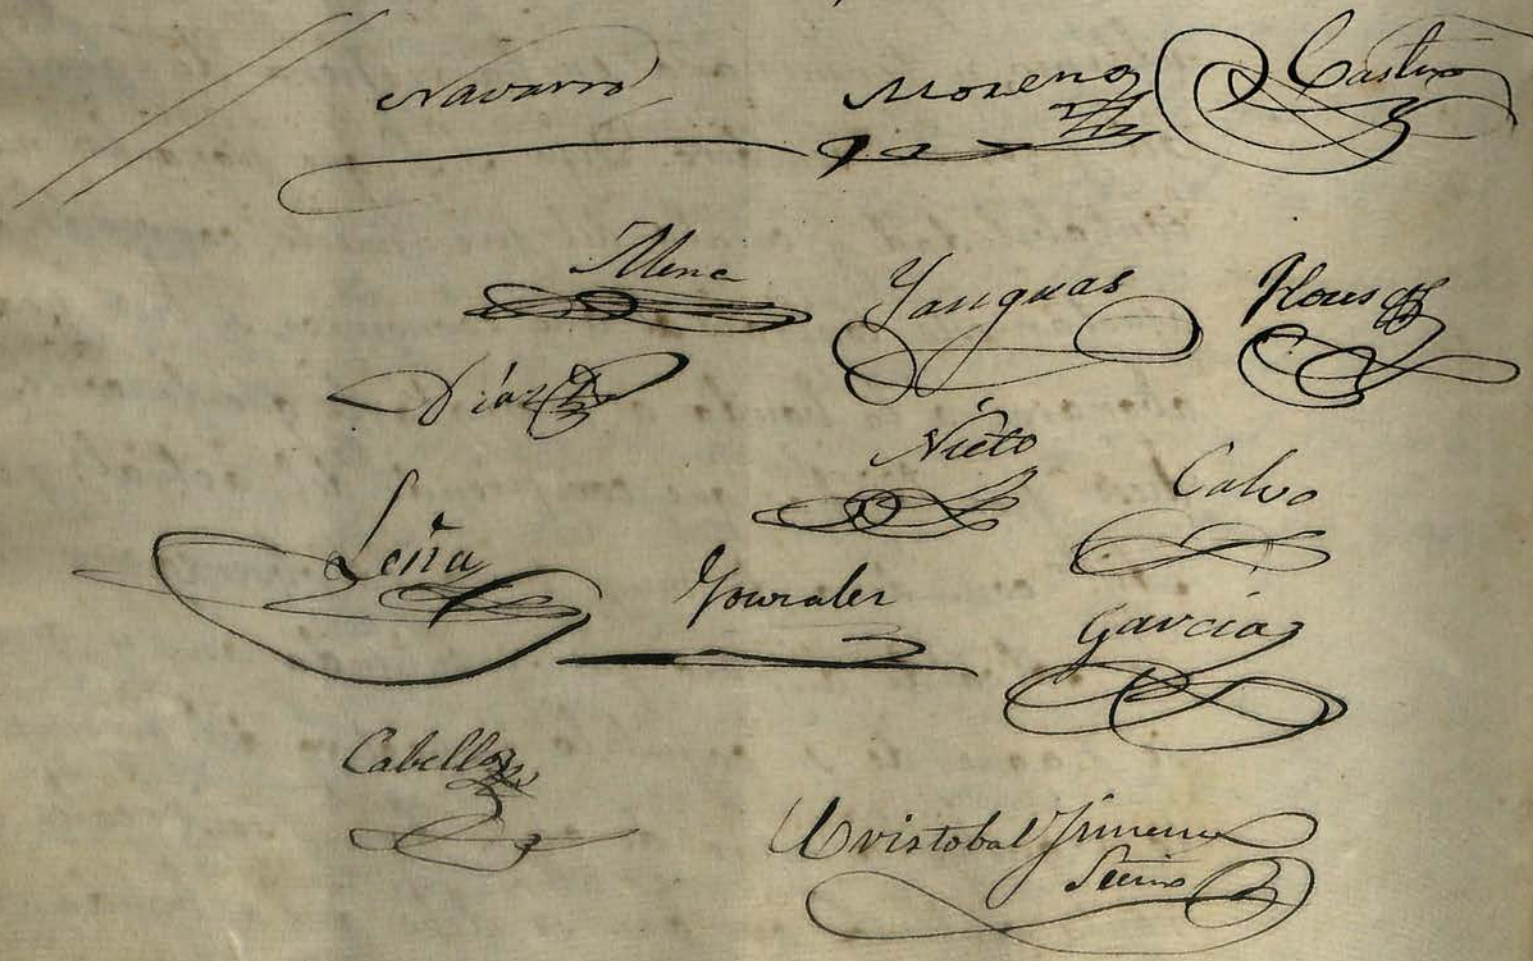 Navarro Moreno Castro
Mena Yanguas Flores
Diaz
Nieto
Calvo
Leña
Gonzalez
Garcia
Cabello
Cristobal Jimenez